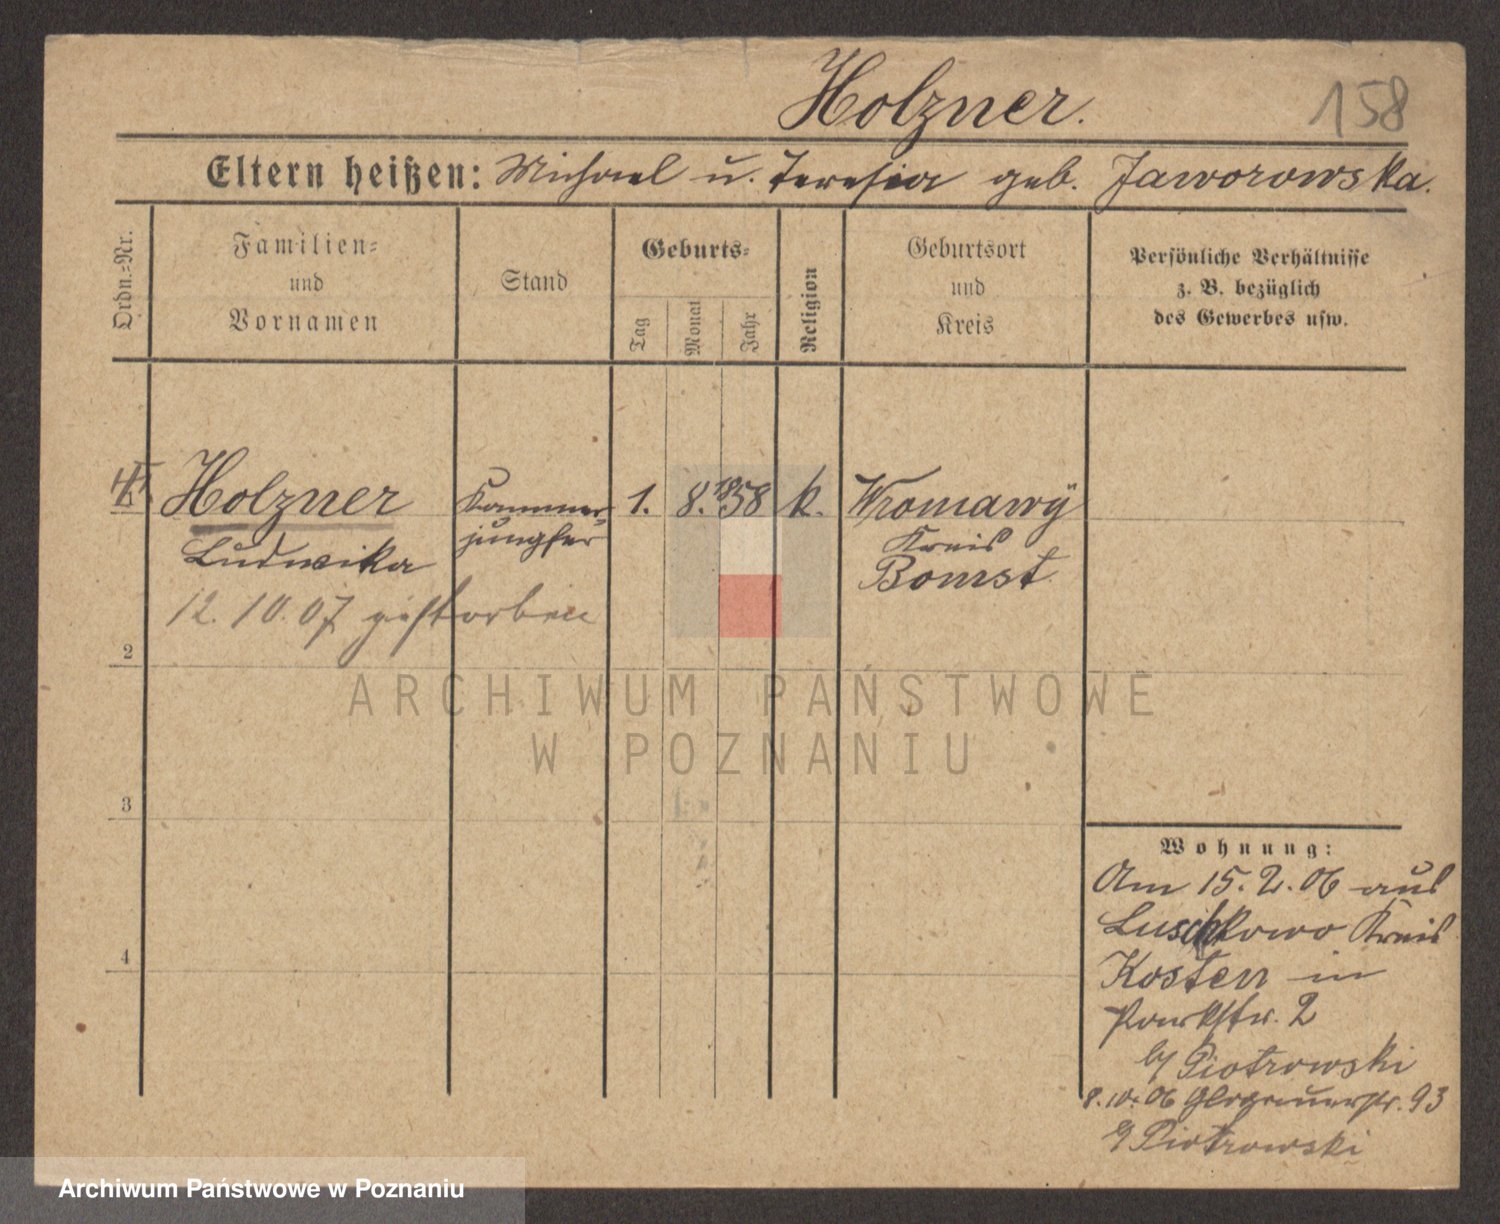 Holzner.
158
Eltern heißen: Michael u. Teresia geb. Jaworowska.
Ordn.=Nr.
Familien=
und
Vornamen
Stand
Geburts=
Tag
Monat
Jahr
Religion
Geburtsort
und
Kreis
Persönliche Verhältnisse
z. B. bezüglich
des Gewerbes usw.
Holzner
Ludwika
Kammer=
jungfer
1. 8. 1858 k.
Wromawÿ
Kreis
Bomst
12. 10. 07 gestorben
2
3
4
ARCHIWUM PAŃSTWOWE
W POZNANIU
Wohnung:
Am 15. 2. 06 aus
Luschkowo Kreis
Kosten in
Parkstr. 2
b/ Piotrowski
8. 10. 06 Glogauerstr. 93
Piotrowski
Archiwum Państwowe w Poznaniu